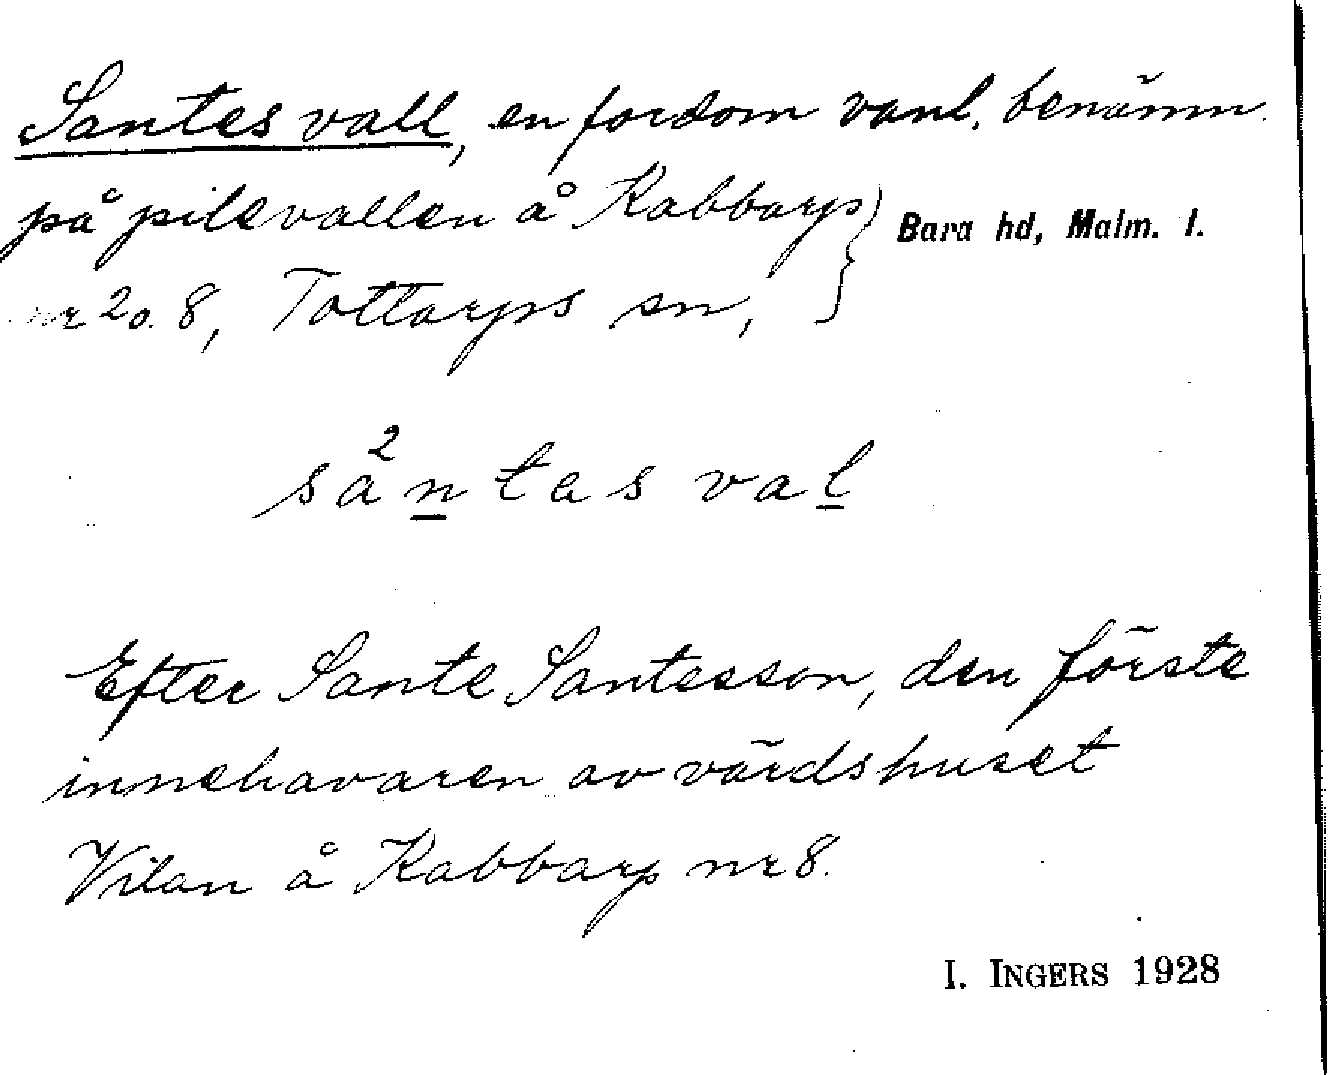 Santes vall, en fordom vanl. benämn.
på pilevallen å Kabbarps } Bara hd, Malm. l.
nr 2 o. 8, Tottarps sn,
så²ntas val
Efter Sante Santesson, den förste
innehavaren av värdshuset
Vilan å Kabbarp nr 8.
I. INGERS 1928